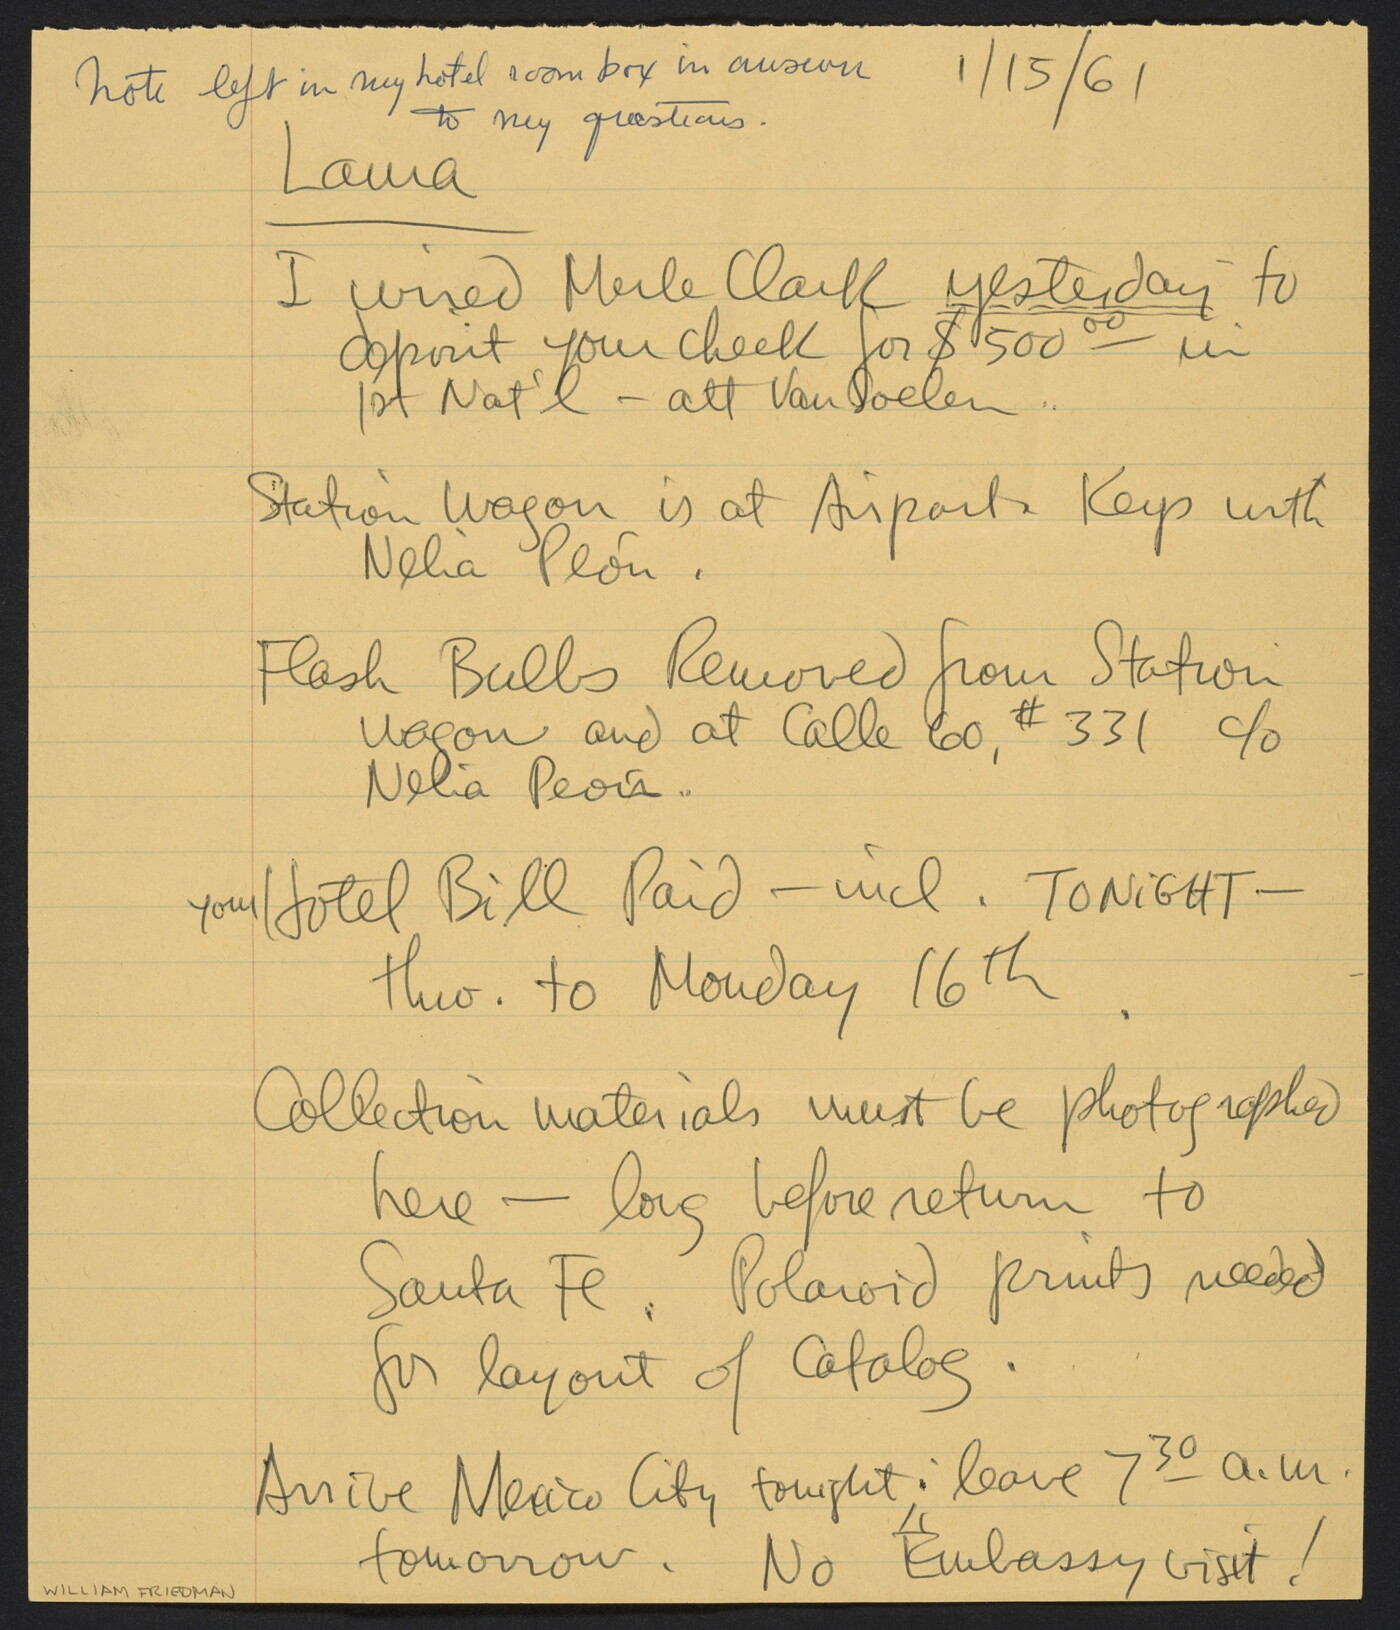 Note left in my hotel room box in answer 1/15/61
to my questions.
Laura
I wired Merle Clark yesterday to
deposit your check for $500 00 in
1st Nat'l - att Van Soelen.
Station Wagon is at Airport. Keys with
Nelia Peón.
Flash Bulbs Removed from Station
Wagon and at Calle 60, # 331 c/o
Nelia Peón.
your Hotel Bill Paid - incl. TONiGHT -
thro. to Monday 16th.
Collection materials must be photographed
here - long before return to
Santa Fe. Polaroid prints needed
for layout of Catalog.
Arrive Mexico City tonight; leave 7 30 a.m.
tomorrow. No Embassy visit!
WILLIAM FRIEDMAN